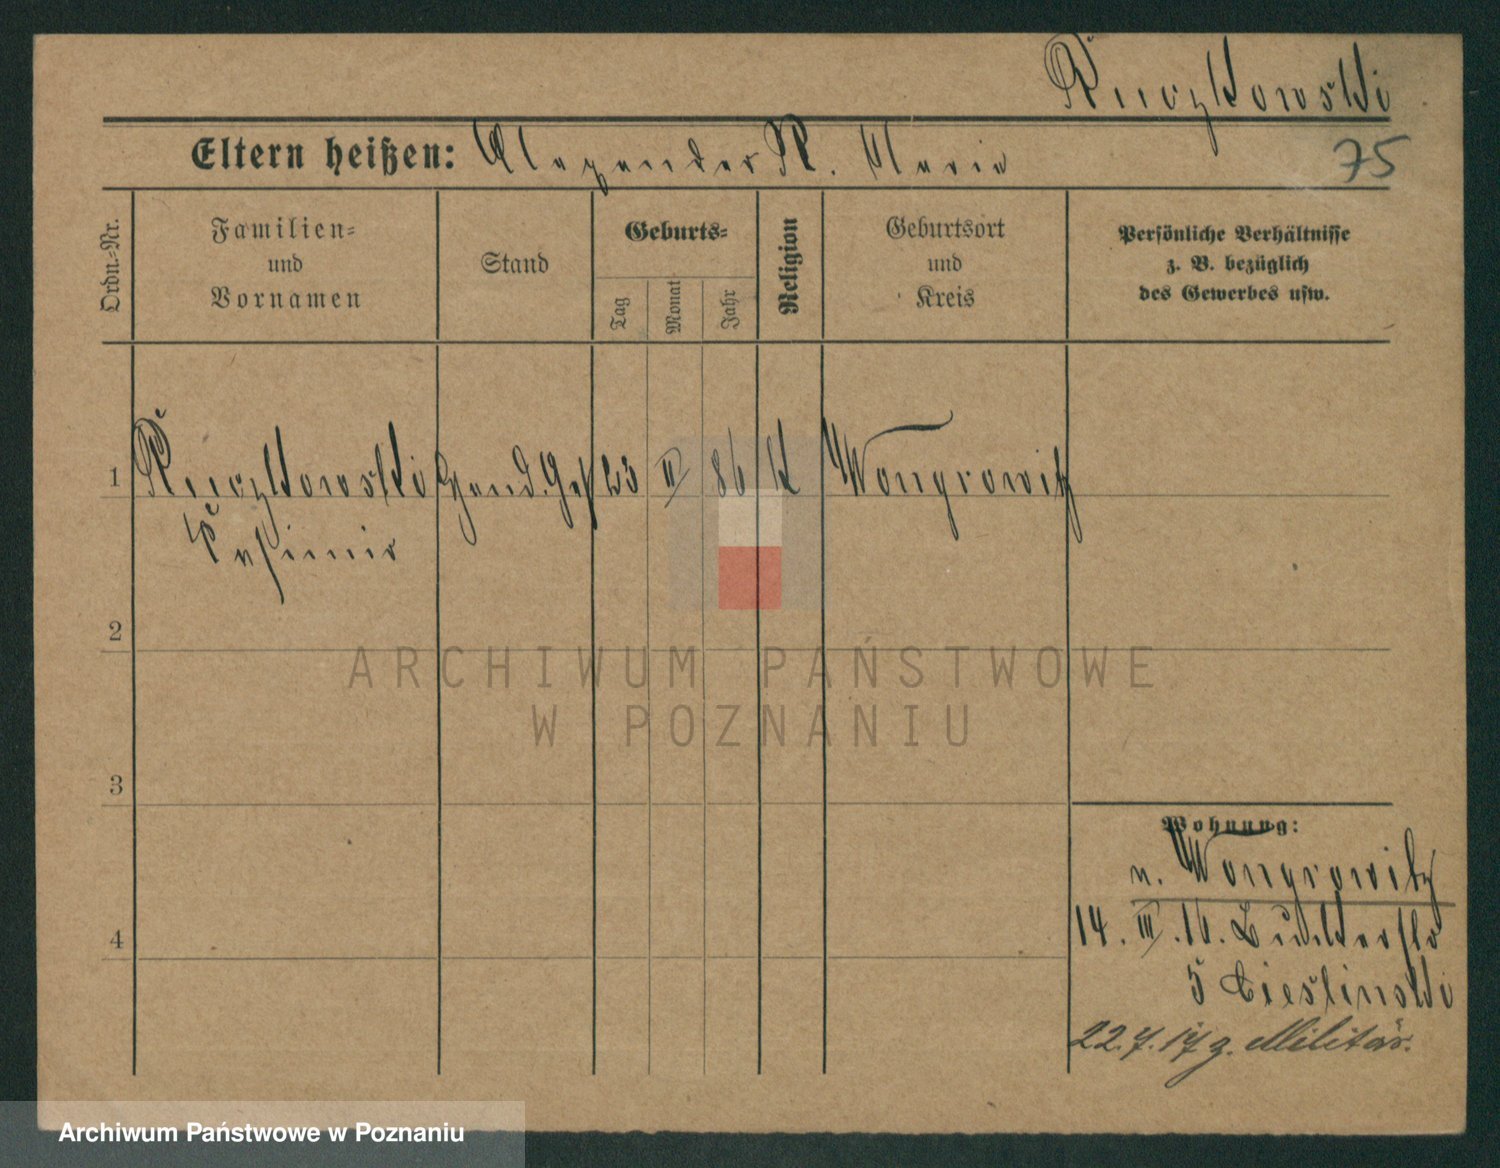 Ruczkowski
75
Eltern heißen: Alexander R. Marie
Ordn.-Nr.
Familien- und Vornamen
Stand
Geburts-
Tag
Monat
Jahr
Religion
Geburtsort und Kreis
Persönliche Verhältnisse
z. B. bezüglich
des Gewerbes usw.
1 Ruczkowski Hand. Geh 23 II 86 K Wongrowitz
Kasimir
2
3
4
Wohnung:
n. Wongrowitz
14. III. 16.
5 Cieslinski
22. 7. 17 z. Militär.
ARCHIWUM PAŃSTWOWE
W POZNANIU
Archiwum Państwowe w Poznaniu